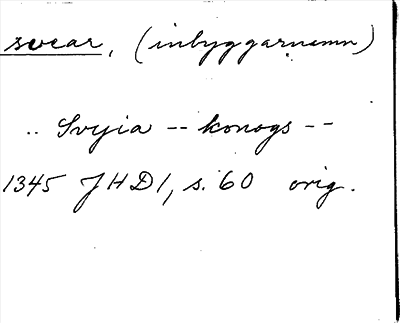 svear, (inbyggarnamn)
.. Svyia -- konogs --
1345 JHD1, s. 60 orig.